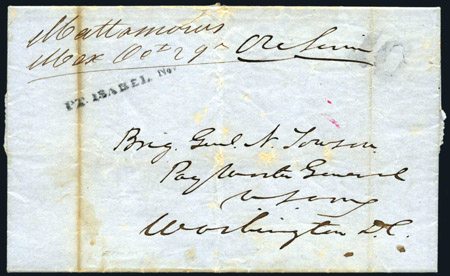 Mattamoras
Mex Oct 29th On Service
PT. ISABEL.
Brig. Genl. N. Towson
Pay Master General
U S Army
Washington D.C.